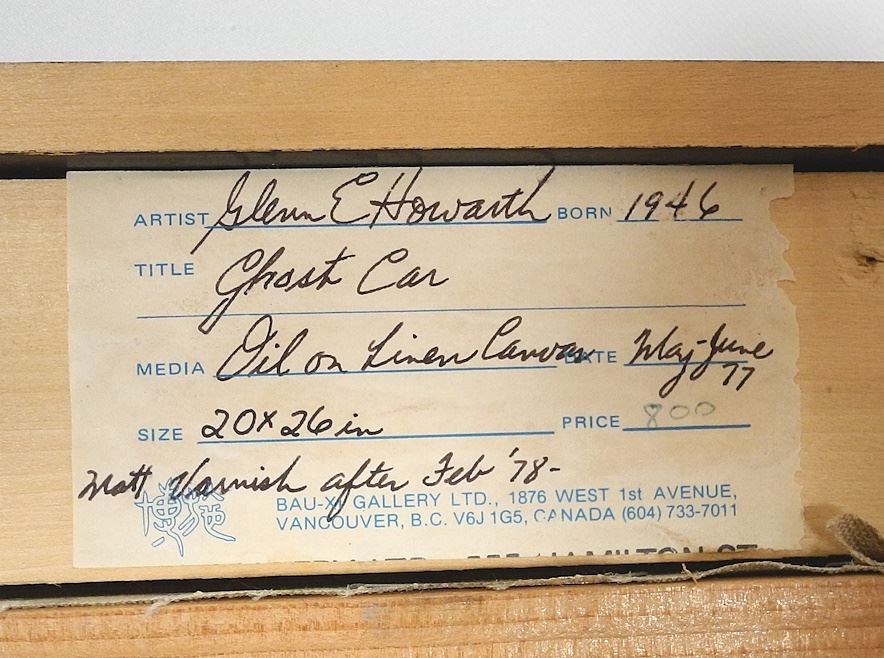 ARTIST Glenn E Howarth BORN 1946
TITLE Ghost Car
MEDIA Oil on Linen Canvas DATE May-June 77
SIZE 20 x 26 in PRICE 800
Matt Varnish after Feb '78-
BAU-XI GALLERY LTD., 1876 WEST 1st AVENUE,
VANCOUVER, B.C. V6J 1G5, CANADA (604) 733-7011
HAMILTON ST